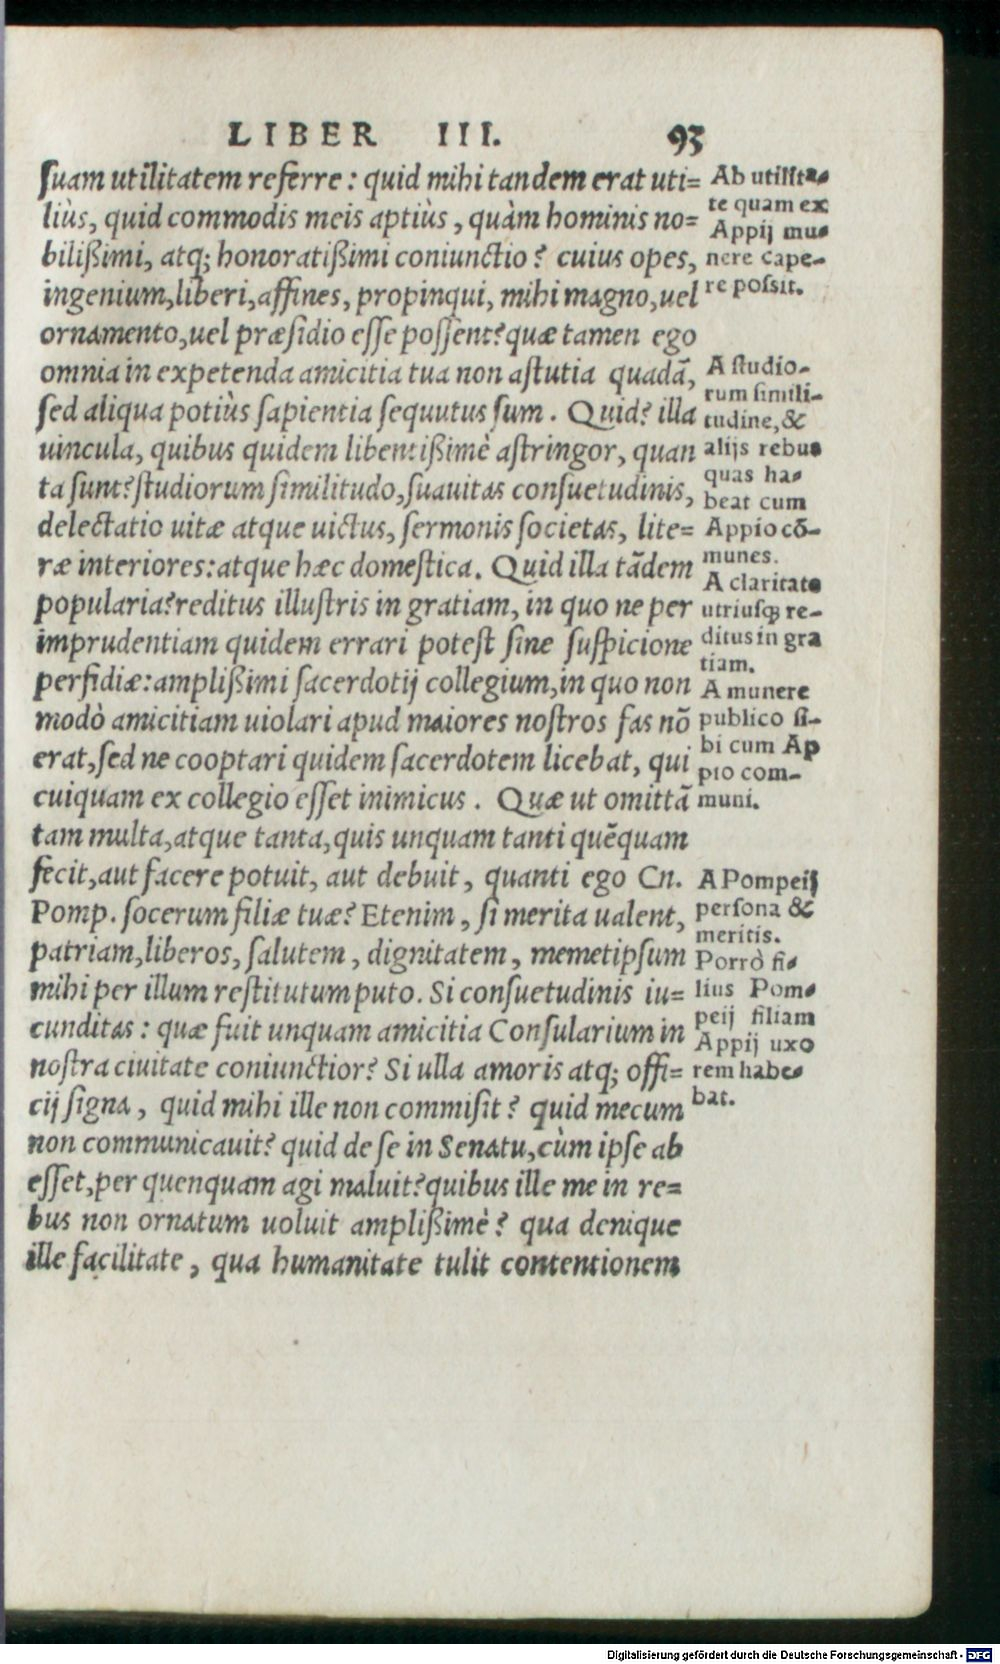 LIBER III. 93
suam utilitatem referre: quid mihi tandem erat uti=
liùs, quid commodis meis aptiùs, quàm hominis no=
bilißimi, atq; honoratißimi coniunctio? cuius opes,
ingenium, liberi, affines, propinqui, mihi magno, uel
ornamento, uel præsidio esse possent? quæ tamen ego
omnia in expetenda amicitia tua non astutia quadã,
sed aliqua potiùs sapientia sequutus sum. Quid? illa
uincula, quibus quidem libentißimè astringor, quan
ta sunt? studiorum similitudo, suauitas consuetudinis,
delectatio uitæ atque uictus, sermonis societas, lite=
ræ interiores: atque hæc domestica. Quid illa tãdem
popularia? reditus illustris in gratiam, in quo ne per
imprudentiam quidem errari potest sine suspicione
perfidiæ: amplißimi sacerdotij collegium, in quo non
modò amicitiam uiolari apud maiores nostros fas nõ
erat, sed ne cooptari quidem sacerdotem licebat, qui
cuiquam ex collegio esset inimicus. Quæ ut omittã
tam multa, atque tanta, quis unquam tanti quẽquam
fecit, aut facere potuit, aut debuit, quanti ego Cn.
Pomp. socerum filiæ tuæ? Etenim, si merita ualent,
patriam, liberos, salutem, dignitatem, memetipsum
mihi per illum restitutum puto. Si consuetudinis iu=
cunditas: quæ fuit unquam amicitia Consularium in
nostra ciuitate coniunctior? Si ulla amoris atq; offi=
cij signa, quid mihi ille non commisit? quid mecum
non communicauit? quid de se in Senatu, cùm ipse ab
esset, per quenquam agi maluit? quibus ille me in re=
bus non ornatum uoluit amplißimè? qua denique
ille facilitate, qua humanitate tulit contentionem
Ab utilita-
te quam ex
Appij mu-
nere cape-
re possit.
A studio-
rum simili-
tudine, &
alijs rebus
quas ha-
beat cum
Appio cõ-
munes.
A claritate
utriusq; re-
ditus in gra
tiam.
A munere
publico si-
bi cum Ap
pio com-
muni.
A Pompeij
persona &
meritis.
Porrò fi-
lius Pom-
peij filiam
Appij uxo
rem habe-
bat.
Digitalisierung gefördert durch die Deutsche Forschungsgemeinschaft - DFG